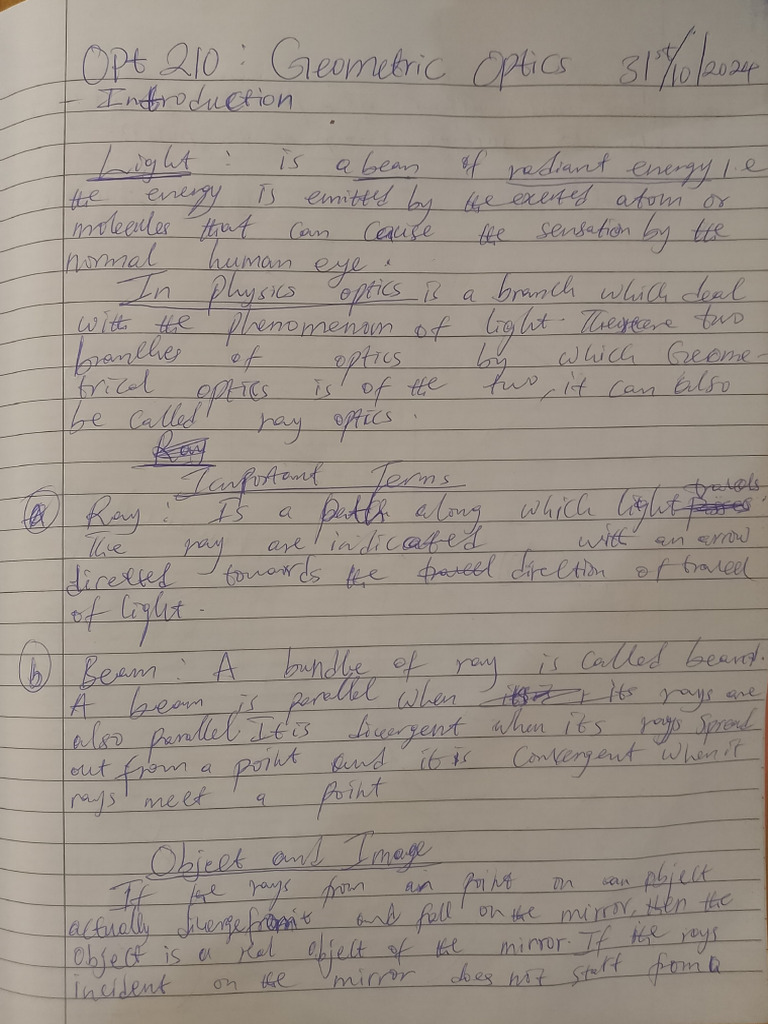 Opt 210 : Geometric Optics 31st/10/2024
- Introduction
Light : is a beam of radiant energy i.e
the energy is emitted by the exerted atom or
molecules that can cause the sensation by the
normal human eye.
In physics optics is a branch which deal
with the phenomenon of light. There are two
branches of optics by which Geome-
trical optics is of the two, it can also
be called ray optics.
Ray
Important Terms
a Ray : Is a path along which light travels
The ray are indicated with an arrow
directed towards the travel direction of travel
of light.
b Beam : A bundle of ray is called beam.
A beam is parallel when its rays are
also parallel. It is divergent when its rays spread
out from a point and it is convergent when it
rays meet a point
Object and Image
If the rays from an point on an object
actually diverge from it and fall on the mirror, then the
object is a real object of the mirror. If the rays
incident on the mirror does not start from a